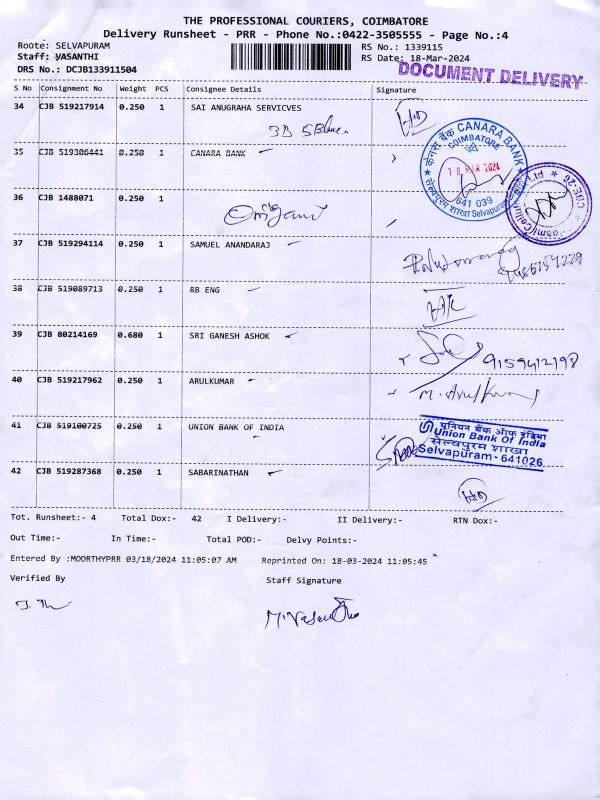 THE PROFESSIONAL COURIERS, COIMBATORE
Delivery Runsheet - PRR - Phone No.:0422-3505555 - Page No.:4
Roote: SELVAPURAM
RS No.: 1339115
Staff: VASANTHI
RS Date: 18-Mar-2024
DRS No.: DCJB133911504
DOCUMENT DELIVERY
S No Consignment No Weight PCS Consignee Details Signature
34 CJB 519217914 0.250 1 SAI ANUGRAHA SERVICVES
35 CJB 519306441 0.250 1 CANARA BANK
केनरा बैंक CANARA BANK
COIMBATORE
18 MAR 2024
641 039
सेल्वपुरम शाखा Selvapuram
36 CJB 1488071 0.250 1
37 CJB 519294114 0.250 1 SAMUEL ANANDARAJ
38 CJB 519089713 0.250 1 RB ENG
39 CJB 80214169 0.680 1 SRI GANESH ASHOK
9159412198
40 CJB 519217962 0.250 1 ARULKUMAR
M. Arulkumar
41 CJB 519100725 0.250 1 UNION BANK OF INDIA
यूनियन बैंक ऑफ इंडिया
Union Bank Of India
सेल्वपुरम शाखा
Selvapuram - 641026
42 CJB 519287368 0.250 1 SABARINATHAN
Tot. Runsheet:- 4 Total Dox:- 42 I Delivery:- II Delivery:- RTN Dox:-
Out Time:- In Time:- Total POD:- Delvy Points:-
Entered By :MOORTHYPRR 03/18/2024 11:05:07 AM Reprinted On: 18-03-2024 11:05:45
Verified By Staff Signature
M.Vasantha